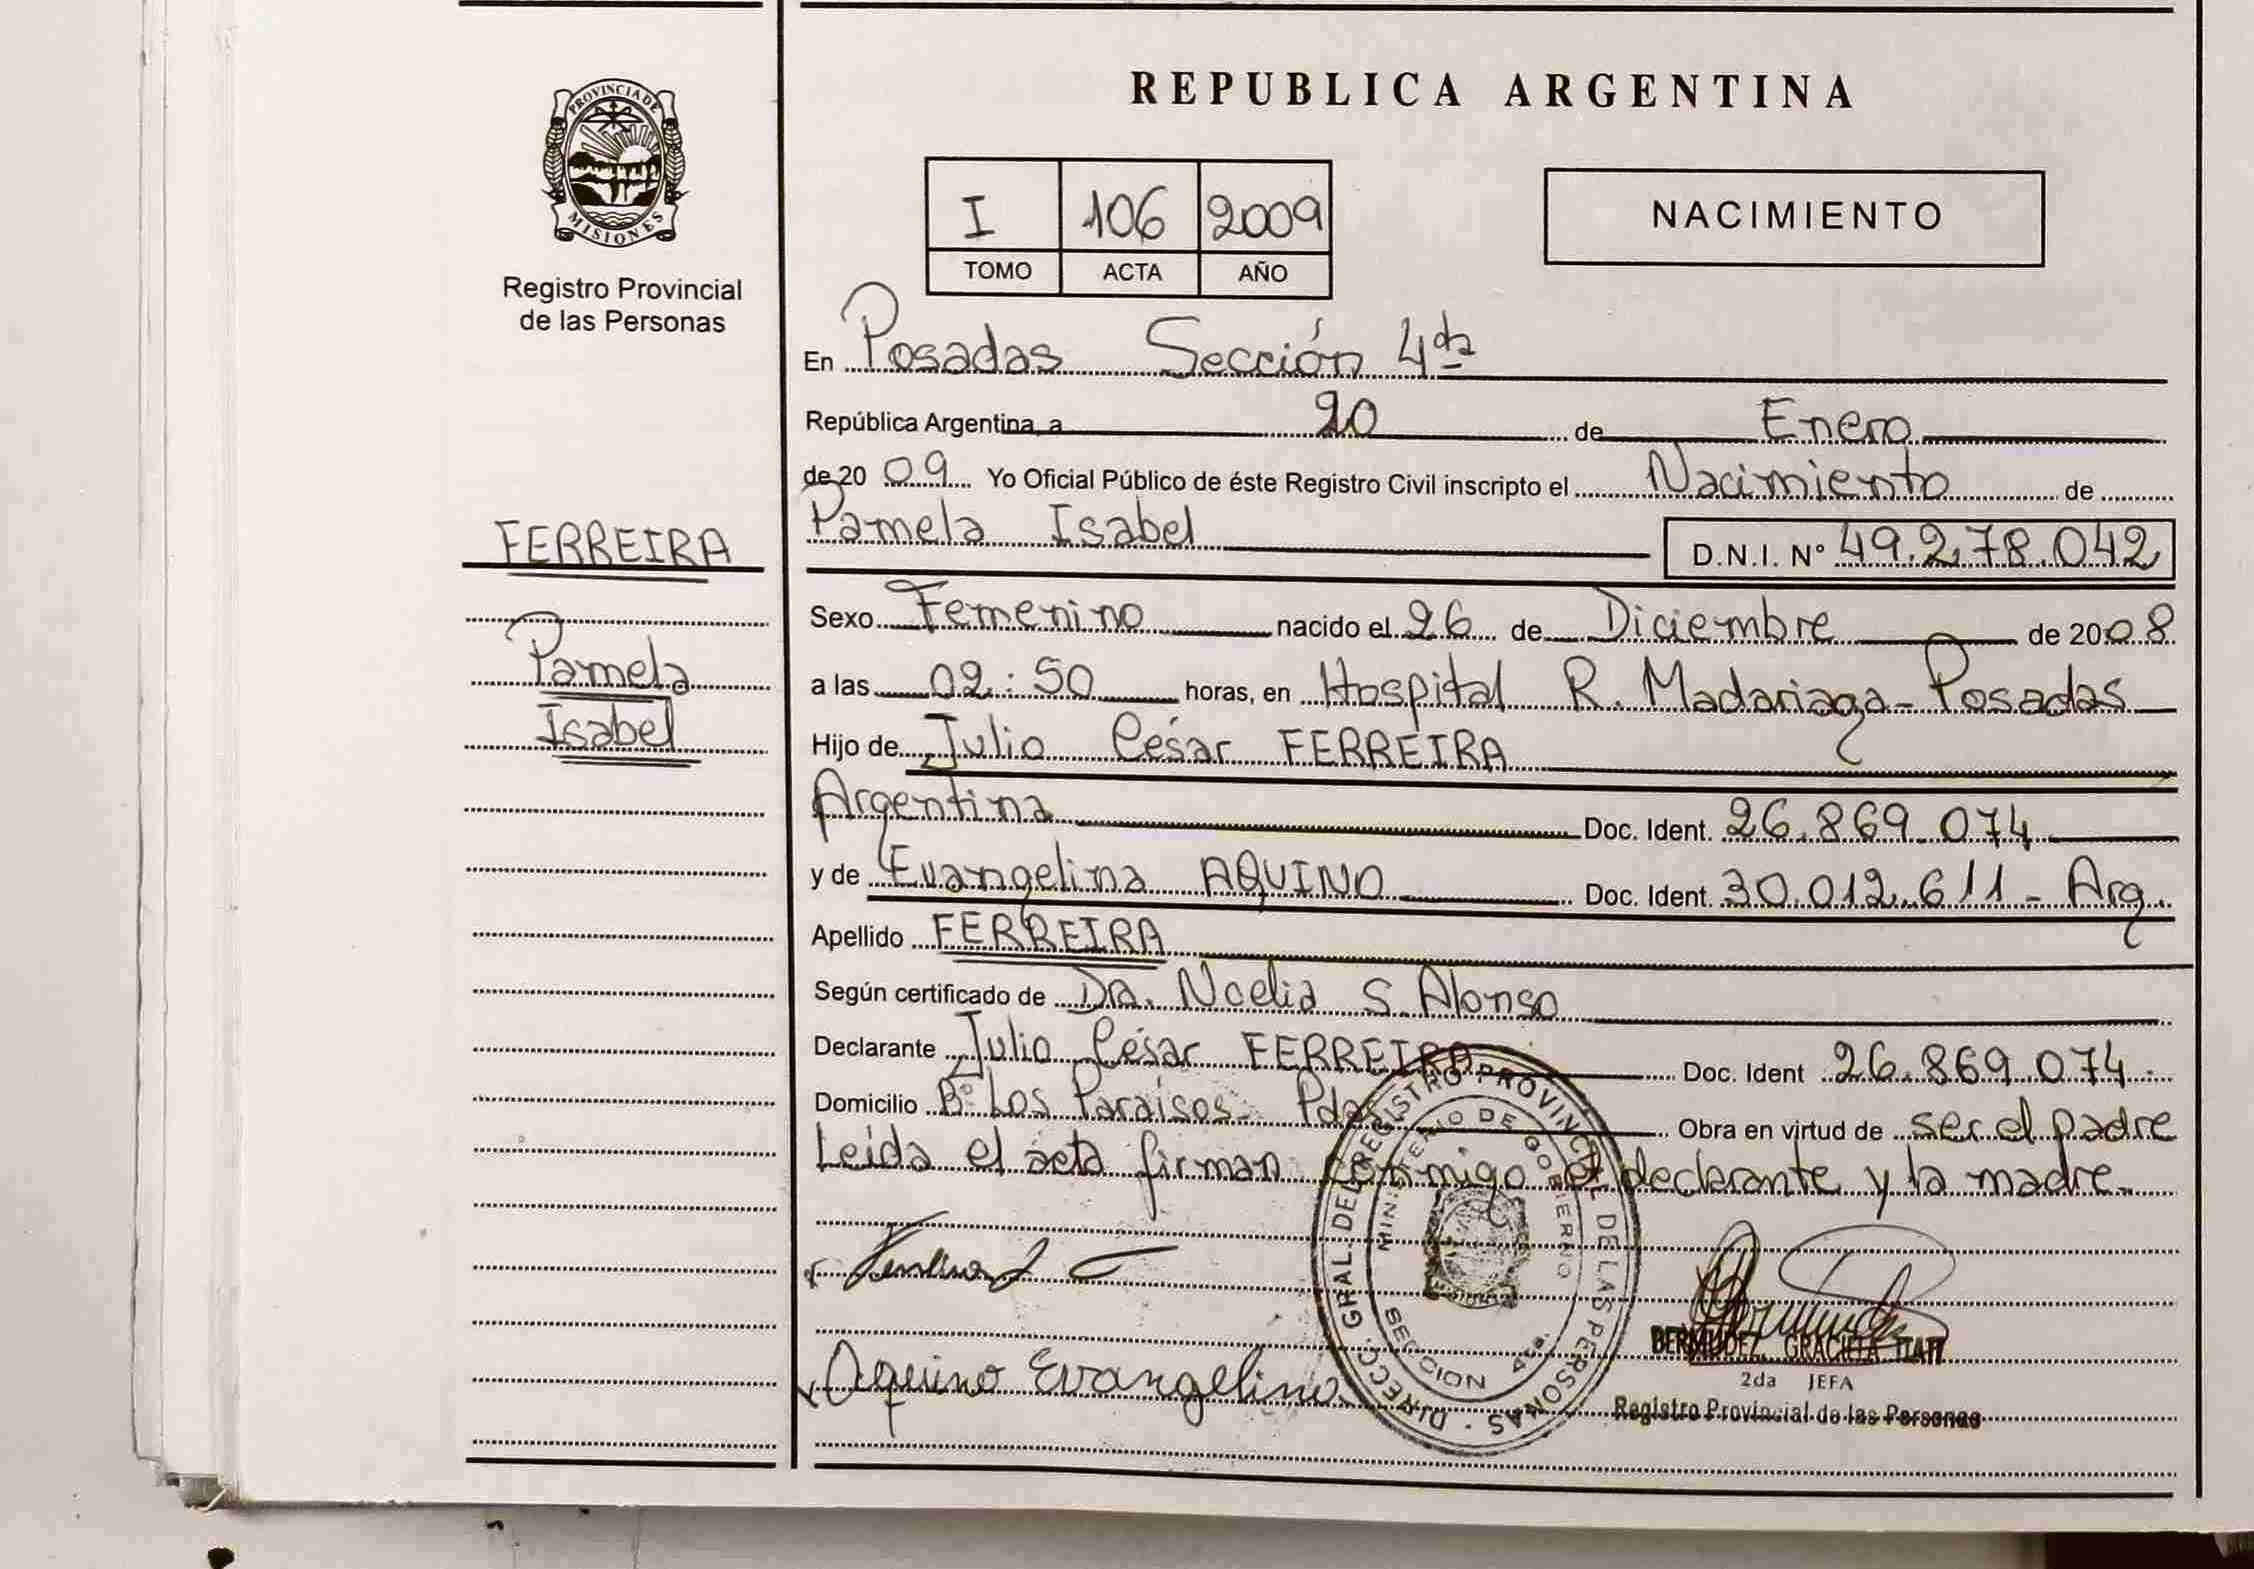 PROVINCIA DE
MISIONES
Registro Provincial
de las Personas
FERREIRA
Pamela
Isabel
REPUBLICA ARGENTINA
I 106 2009
TOMO ACTA AÑO
NACIMIENTO
En Posadas Sección 4ta
República Argentina, a 20 de Enero
de 20 09 Yo Oficial Público de éste Registro Civil inscripto el Nacimiento de
Pamela Isabel D.N.I. Nº 49.278.042
Sexo Femenino nacido el 26 de Diciembre de 2008
a las 02:50 horas, en Hospital R. Madariaga - Posadas
Hijo de Julio César FERREIRA
Argentina Doc. Ident. 26.869.074
y de Evangelina AQUINO Doc. Ident. 30.012.611 - Arg.
Apellido FERREIRA
Según certificado de Dra. Noelia S. Alonso
Declarante Julio César FERREIRA Doc. Ident 26.869.074.
Domicilio Bº Los Paraísos - Pdas. Obra en virtud de ser el padre
Leída el acta firman conmigo el declarante y la madre.
DIRECC. GRAL. DEL REGISTRO PROVINCIAL DE LAS PERSONAS
MINISTERIO DE GOBIERNO
SECCION 4ta.
Aquino Evangelina
BERMUDEZ, GRACIELA ITATI
2da JEFA
Registro Provincial de las Personas